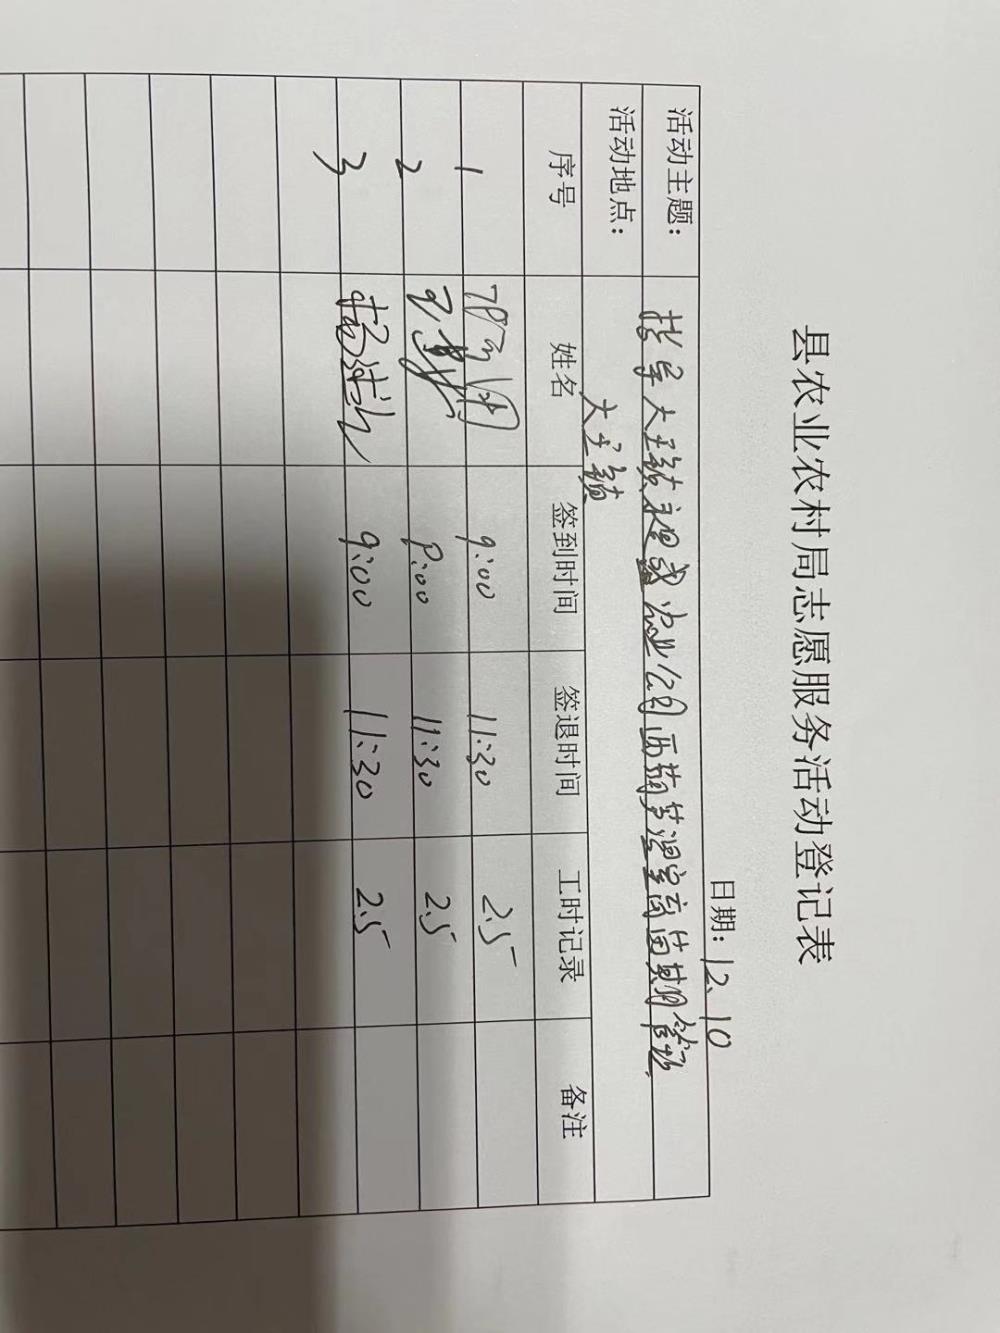 县农业农村局志愿服务活动登记表
日期：12.10
活动主题： 指导大王镇 农业公司西葫芦温室 苗期管理
活动地点： 大王镇
序号 姓名 签到时间 签退时间 工时记录 备注
1 9:00 11:30 2.5
2 9:00 11:30 2.5
3 杨 9:00 11:30 2.5